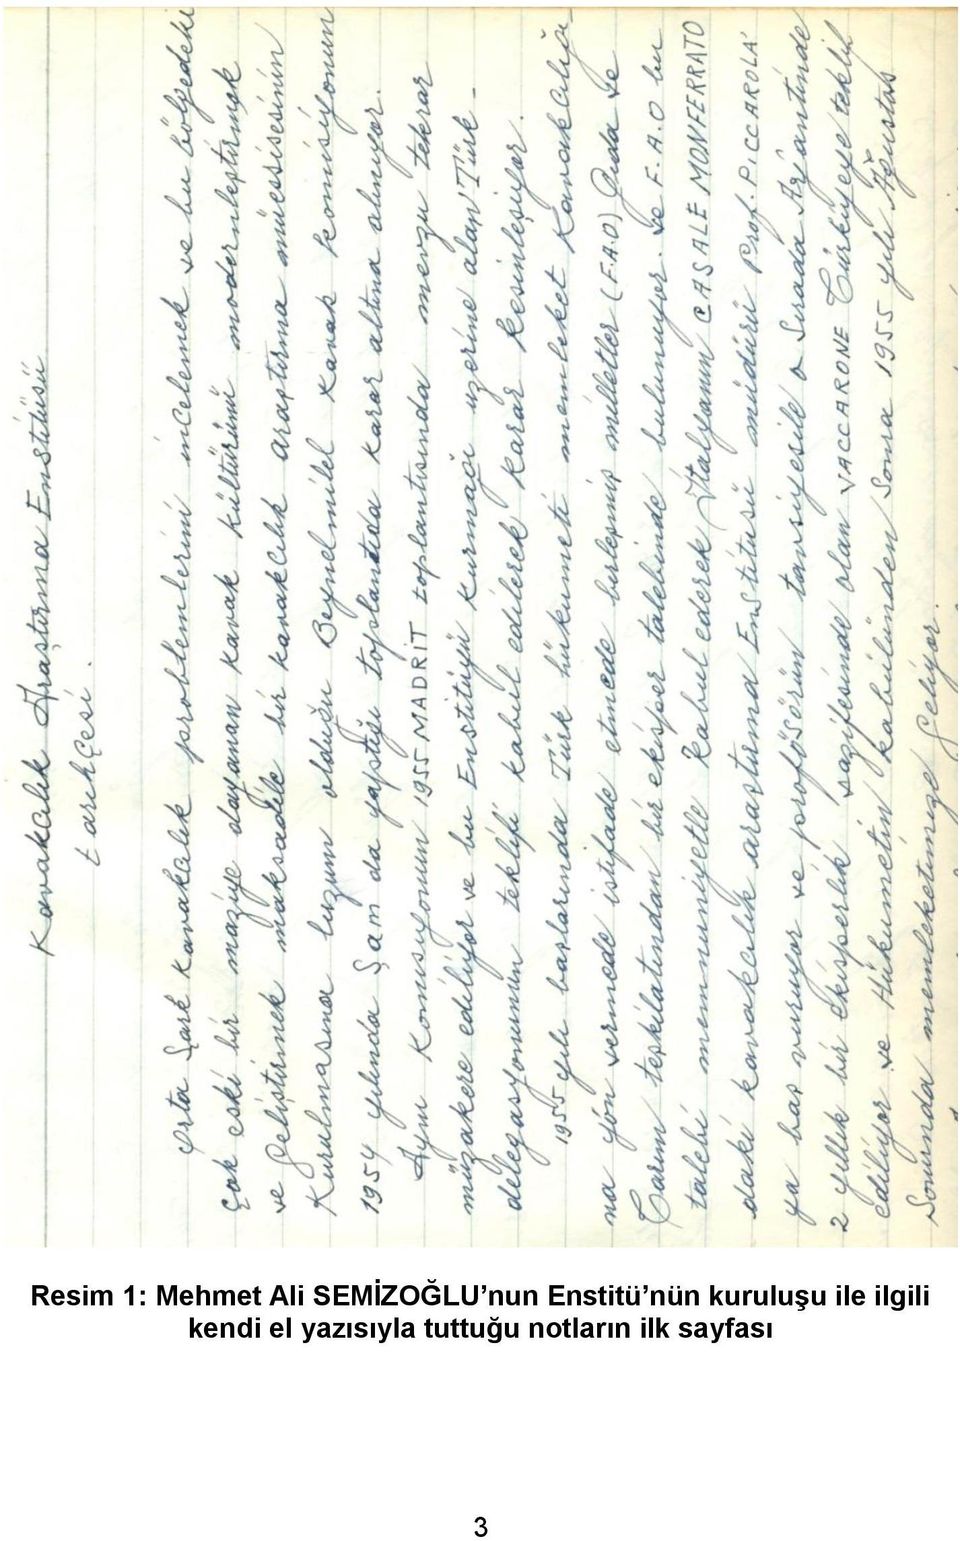 Kavakcılık Araştırma Enstitüsü
tarihçesi.
Orta Şark Kavakcılık problemlerini incelemek ve bu bölgedeki
çok eski bir maziye dayanan kavak kültürünü modernleştirmek
ve geliştirmek maksadile bir kavakcılık araştırma müessisesinin
Kurulmasına luzum olduğu Beynelmilel Kavak Komisiyonun
1954 yılında Şam da yaptığı toplantıda karar altına alınıyor.
Aynı Komisyonun 1955 MADRİT toplantısında mevzu tekrar
müzakere ediliyor ve bu Enstitüyü Kurmağı üzerine alan Türk
delegasyonunun teklifi kabul edilerek karar kesinleşiyor.
1955 yılı başlarında Türk hükumeti memleket Kavakcılığı-
na yön vermede istifade etmede birleşmiş milletler (F.A.O) Gıda ve
Tarım teşkilatından bir eksper talebinde bulunuyor. Ve F.A.O bu
talebi memnuniyetle Kabul ederek İtalyanın CASALE MONFERRATO
daki kavakcılık araştırma Enstitüsü müdürü Prof. PICCAROLA'
ya baş vuruyor ve profösörün tavsiyesile o sırada Arjantinde
2 yıllık bir Eksperlik vazifesinde olan VACCARONE Türkiyeye teklif
ediliyor ve Hükumetin kabulünden Sonra 1955 yılı Ağustos
Sonunda memleketimize geliyor.
Resim 1: Mehmet Ali SEMİZOĞLU'nun Enstitü'nün kuruluşu ile ilgili
kendi el yazısıyla tuttuğu notların ilk sayfası
3